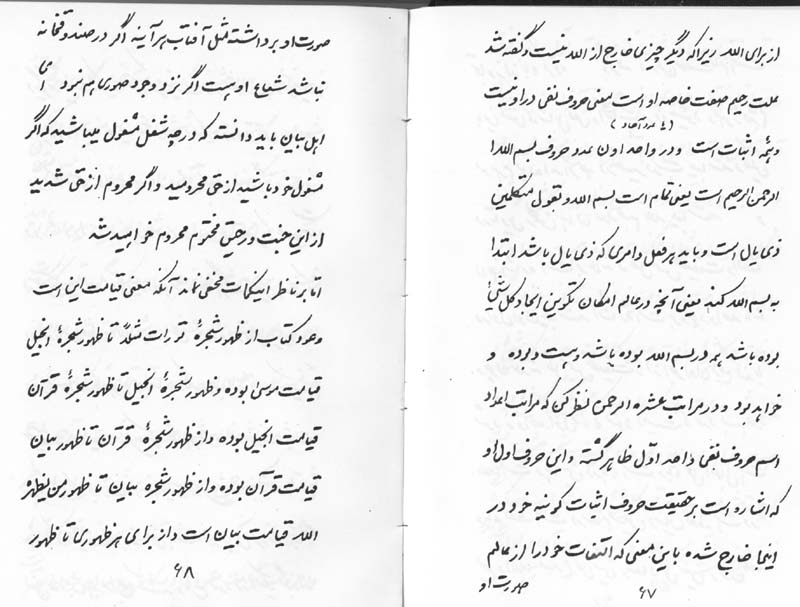 از برای الله زیرا که دیگر چیزی خارج از الله نیست و گفته شد
علت رحیم صفت خاصه او است معنی حروف نفی در او نیست
و همه اثبات است و در واحد اون عدد حروف بسم الله ا
الرحمن الرحیم است یعنی تمام است بسم الله و تقول متکلمین
ذی یال است و باید هر فعل و امری که ذی یال باشد ابتدا
به بسم الله کند یعنی آنچه در عالم امکان تکوین ایجاد کل شیء
بوده باشد همه در بسم الله بوده باشد و هست و بوده و
خواهد بود و در مراتب عشره الرحمن نظر کن که مراتب اعداد
اسم حروف نفی واحد اول ظاهر گشته و این حروف اول او
که اشاره است بر حقیقت حروف اثبات کونیه خود در
اینجا خارج شده باین معنی که التفات خود را از عالم
صورت او
۶۷
صورت او برداشته مثل آفتاب بر آینه اگر در صندوقخانه
نباشد شعاع او هست اگر نزد وجود صوری هم نبود ای
اهل بیان باید دانسته که در چه شغل مشغول میباشید که اگر
مشغول خود باشید از حق محرومید و اگر محروم از حق شدید
از این جنت و رحیق مختوم محروم خواهید شد
اما بر ناظر اینکلمات مخفی نماند آنکه معنی قیامت این است
و هو کتاب از ظهور شجرهٔ تورات مثلاً تا ظهور شجرهٔ انجیل
قیامت موسی بوده و ظهور شجرهٔ انجیل تا ظهور شجرهٔ قرآن
قیامت انجیل بوده و از ظهور شجرهٔ قرآن تا ظهور بیان
قیامت قرآن بوده و از ظهور شجره بیان تا ظهور من یظهره
الله قیامت بیان است و از برای هر ظهوری تا ظهور
۶۸